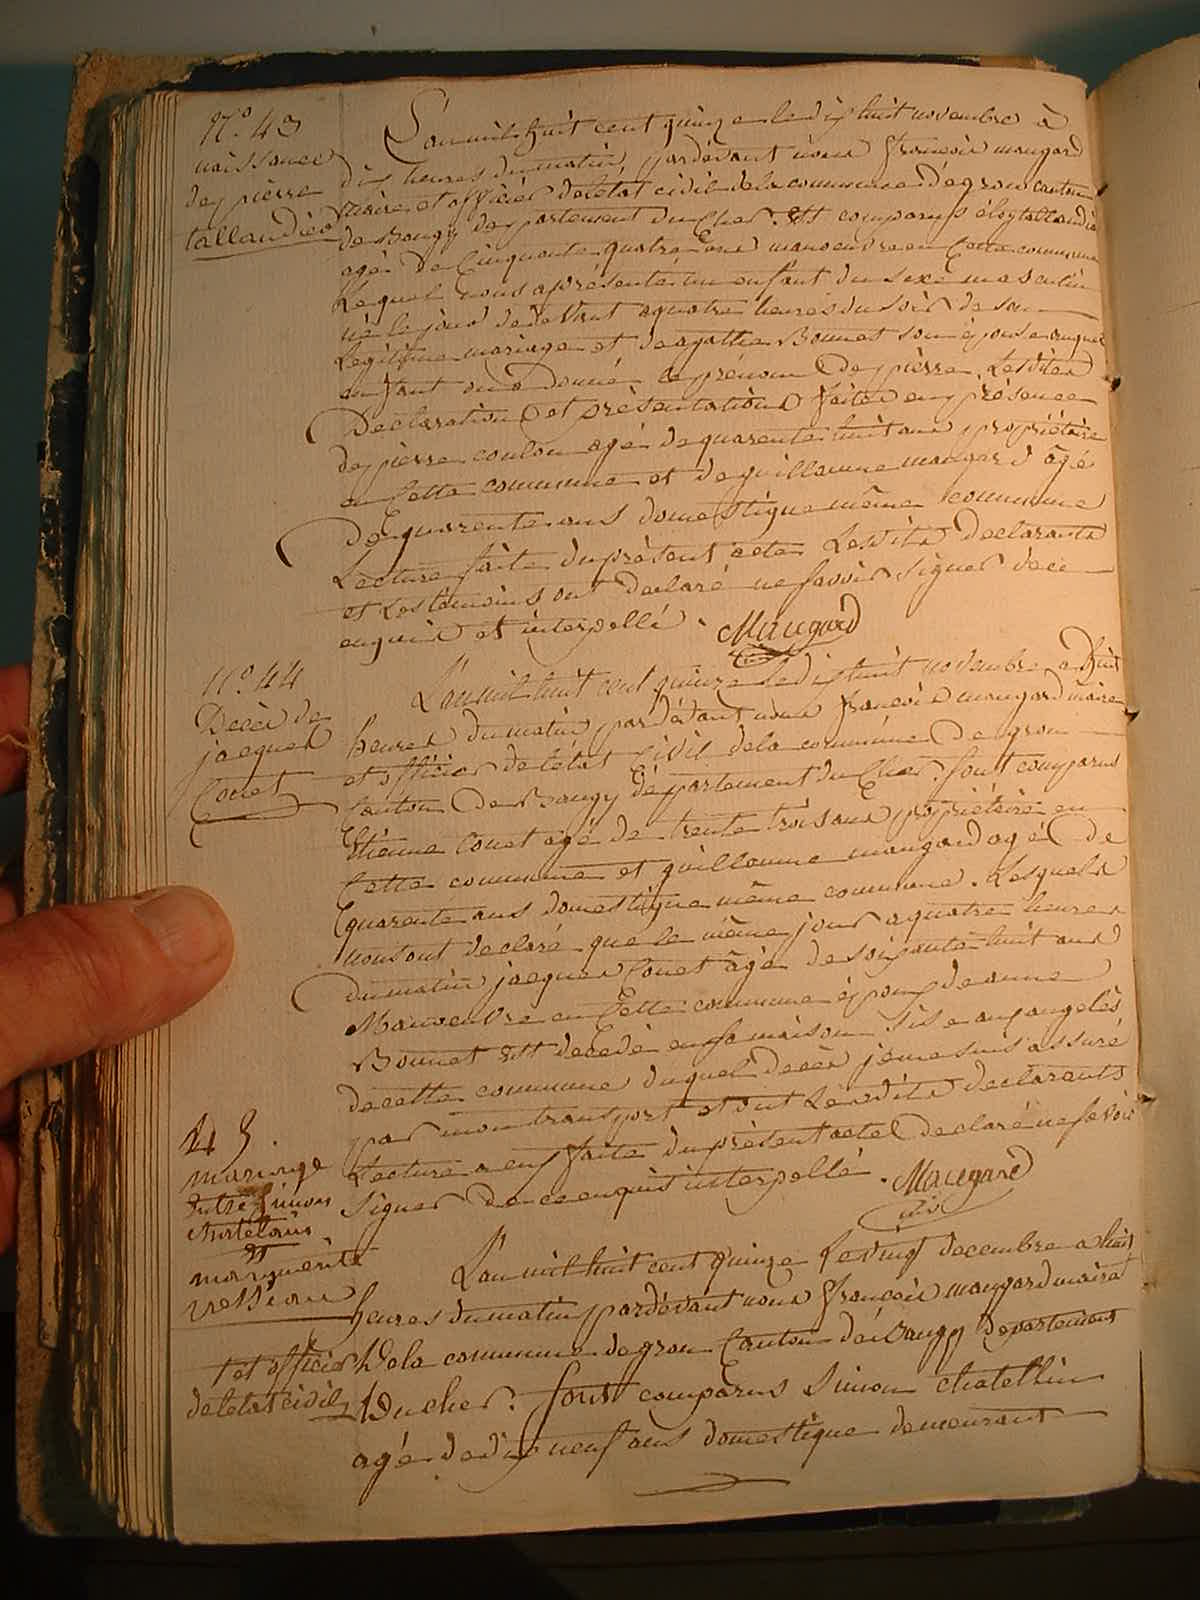 N.º 43
naissance
de pierre
tallandier
L'an mil huit cent quinze le dix huit novembre à
dix heures du matin, pardevant nous françois maugard
maire et officier de l'état civil de la commune de gron canton
de Baugy département du Cher. Est comparus éloy tallandié
agé de Cinquante quatre ans manoeuvre en Cette commune
Lequel nous a présenté un enfant du sexe masculin
né le jour de devant a quatre heures du soir de son
Legitime mariage et de agathe Bonnet son épouse auquel
enfant on a donné le prénom de pierre. Lesdites
Déclaration et présentation faites en présence
de pierre coulon agé de quarente huit ans propriétaire
en Cette commune et de guillaume maugard âgé
De quarente ans domestique même commune
Lecture faite du présent acte Lesdits Declarants
et Les témoins ont declaré ne savoir signer de ce
enquis et interpellé. Maugard
N.º 44
Décès de
jacques
Couet
L'an mil huit cent quinze le dix huit novembre a huit
heures du matin, pardevant nous françois maugard maire
et officier de l'état Civil de la commune de gron
Canton de Baugy département du Cher. sont comparus
Etienne Couet agé de trente trois ans propriétaire en
Cette commune et guillaume maugard agé de
Quarente ans domestique même commune. Lesquels
nous ont declaré que le même jour a quatre heures
du matin jacques Couet âgé de soixante huit ans
Manoeuvre en Cette commune époux de anne
Bonnet Est decedé en sa maison sise aux angelès
de cette commune duquel deces je me suis assuré
par mon transport et ont Lesdits declarants
Lecture a eux faite du présent acte declaré ne savoir
signer de ce enquis interpellé. Maugard
45.
mariage
Entre simon
chatelain
et
marguerite
L'an mil huit cent quinze le vingt decembre a huit
heures du matin pardevant nous françois maugard maire
† et officier
de l'état civil
† De la commune de gron Canton de Baugy departement
Du cher. sont comparus Simon chatellin
agé de dix neuf ans domestique demeurant